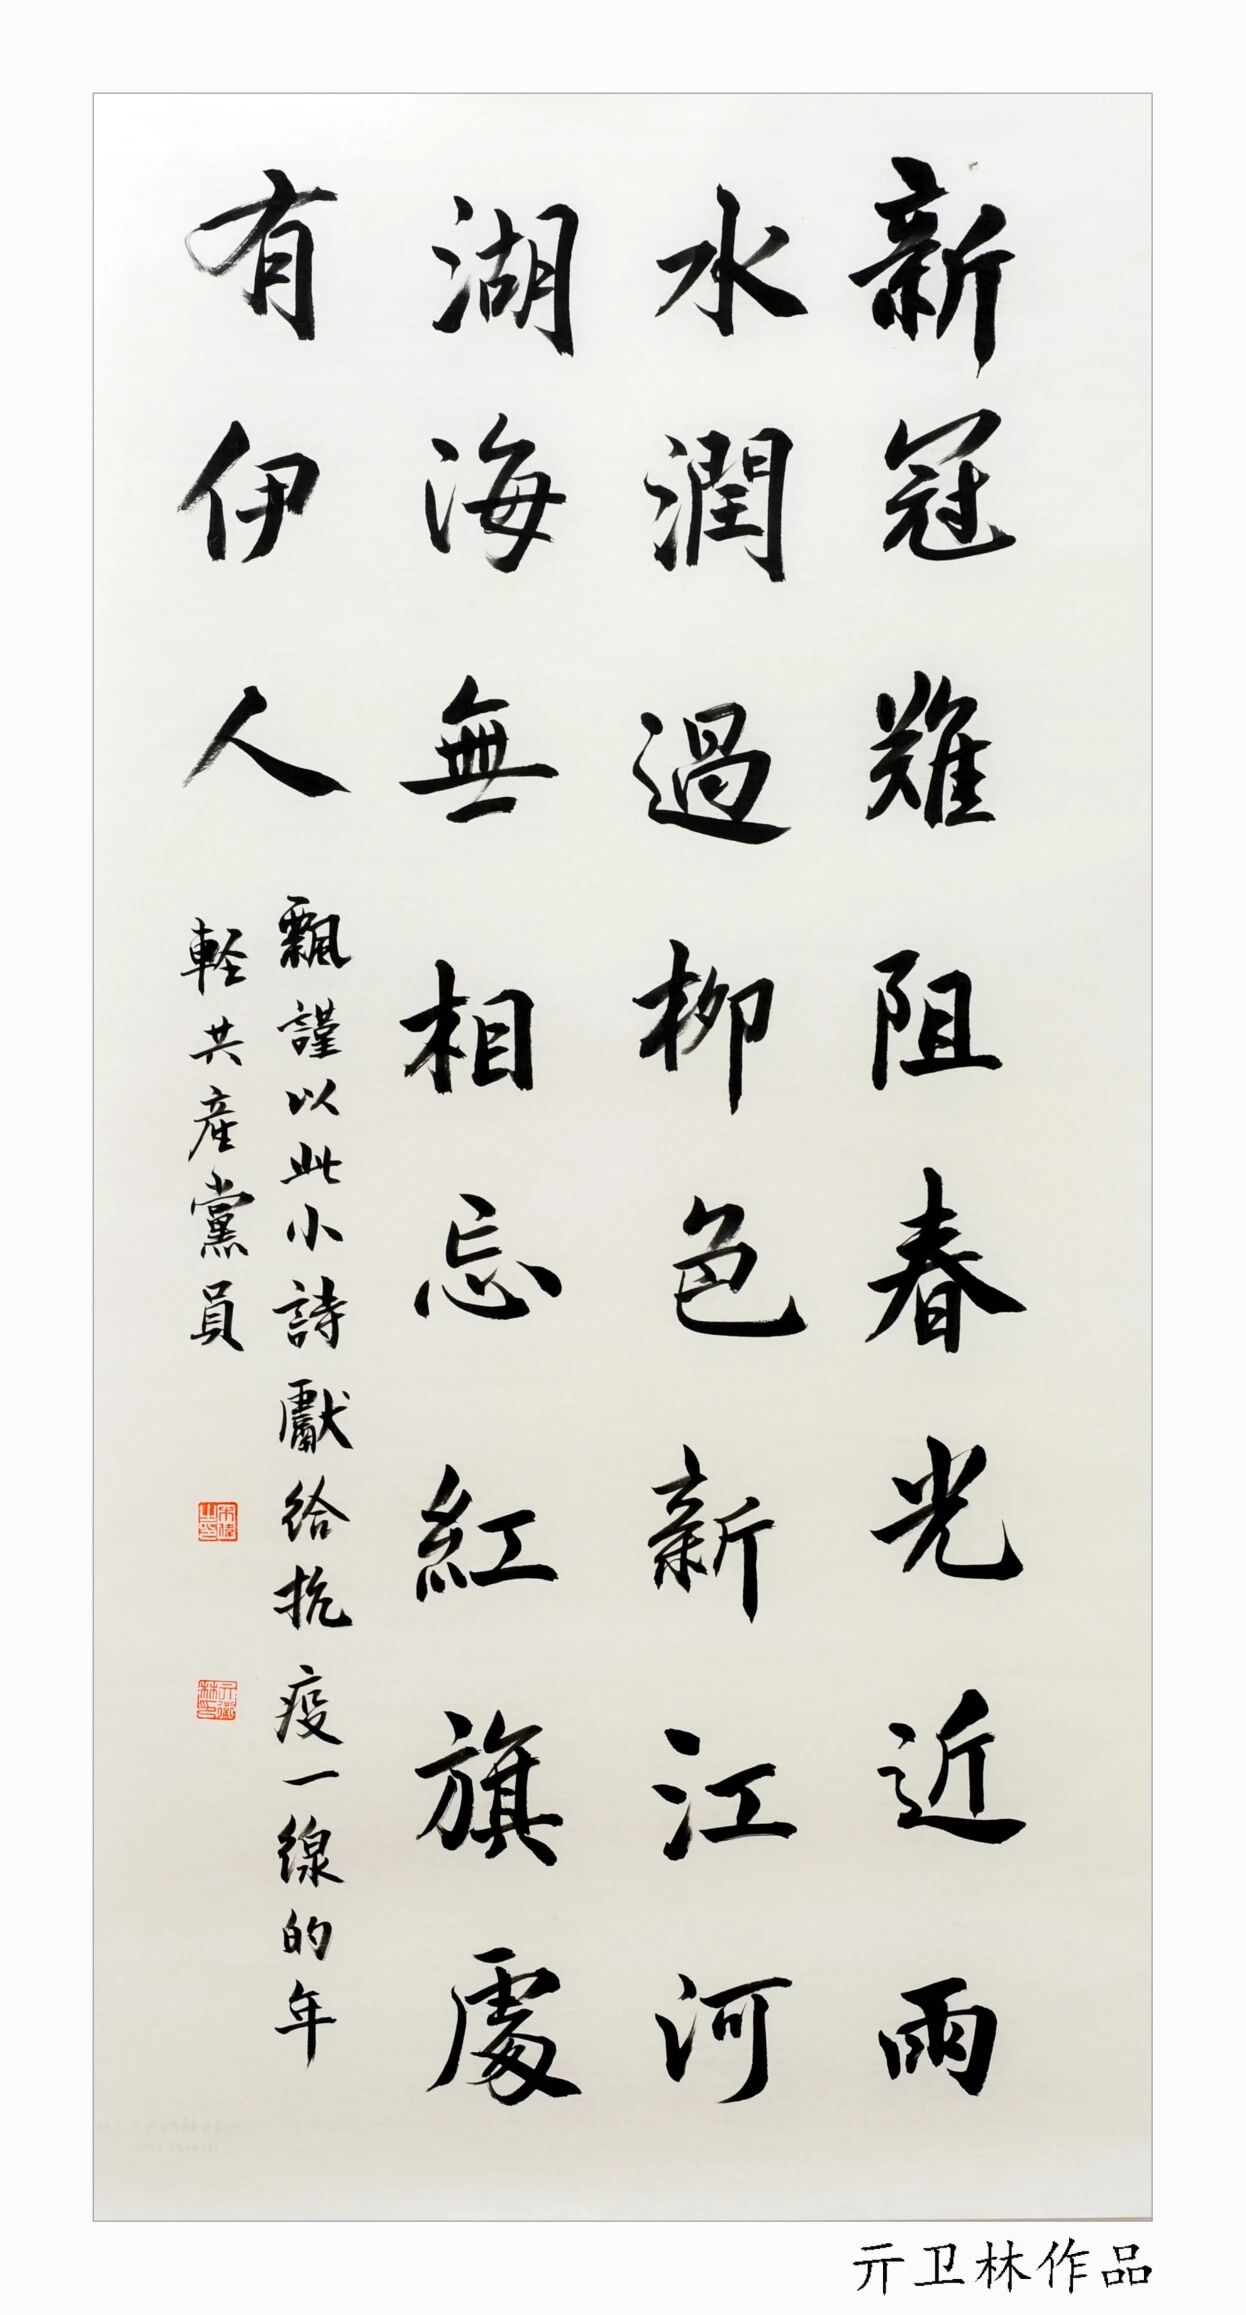 新冠難阻春光近雨
水潤過柳色新江河
湖海無相忘紅旗處
有伊人
飄謹以此小詩獻給抗疫一線的年
軽共産黨員
亓衛林印
亓卫林作品